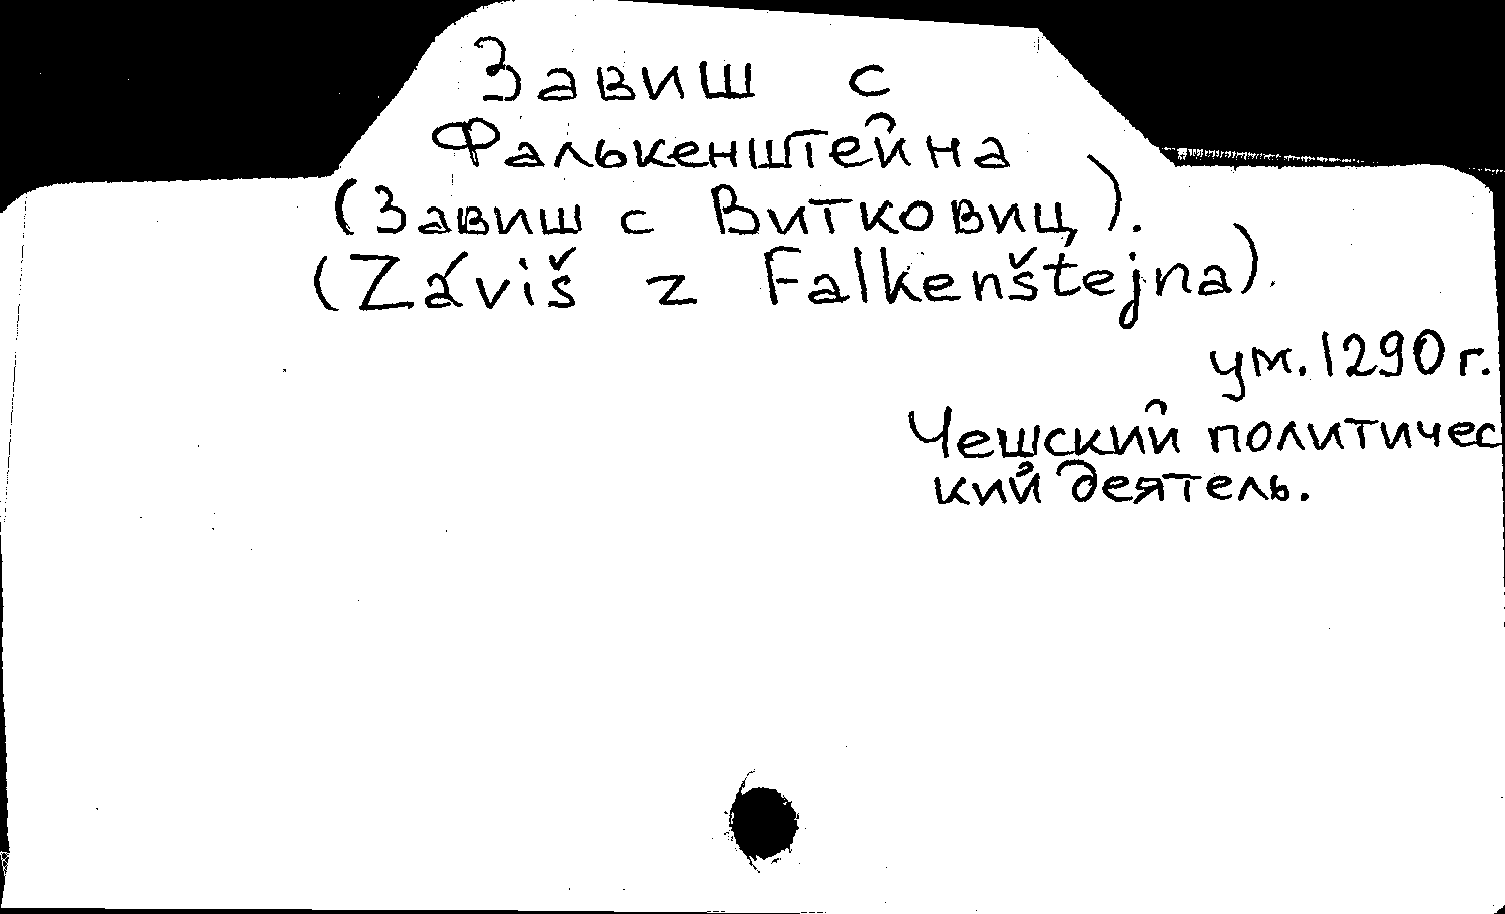 Завиш с
Фалькенштейна
(Завиш с Витковиц).
(Záviš z Falkenštejna).
ум. 1290 г.
Чешский политичес
кий деятель.